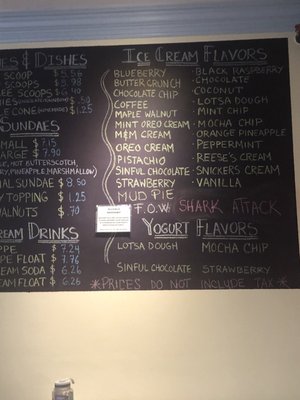 ES & DISHES
SCOOP $5.56
SCOOPS $5.98
EE SCOOPS $6.40
$.50
E CONE $1.25
SUNDAES
MALL $7.15
ARGE $7.90
LE, HOT BUTTERSCOTCH,
RY, PINEAPPLE, MARSHMALLOW)
IAL SUNDAE $8.50
Y TOPPING $1.25
WALNUTS $.70
REAM DRINKS
PPE $7.24
PE FLOAT $7.76
EAM SODA $6.26
EAM FLOAT $6.26
ICE CREAM FLAVORS
BLUEBERRY
BUTTER CRUNCH
CHOCOLATE CHIP
COFFEE
MAPLE WALNUT
MINT OREO CREAM
M&M CREAM
OREO CREAM
PISTACHIO
SINFUL CHOCOLATE
STRAWBERRY
MUD PIE
BLACK RASPBERRY
CHOCOLATE
COCONUT
LOTSA DOUGH
MINT CHIP
MOCHA CHIP
ORANGE PINEAPPLE
PEPPERMINT
REESE'S CREAM
SNICKERS CREAM
VANILLA
F.O.W. SHARK ATTACK
YOGURT FLAVORS
LOTSA DOUGH MOCHA CHIP
SINFUL CHOCOLATE STRAWBERRY
*PRICES DO NOT INCLUDE TAX*